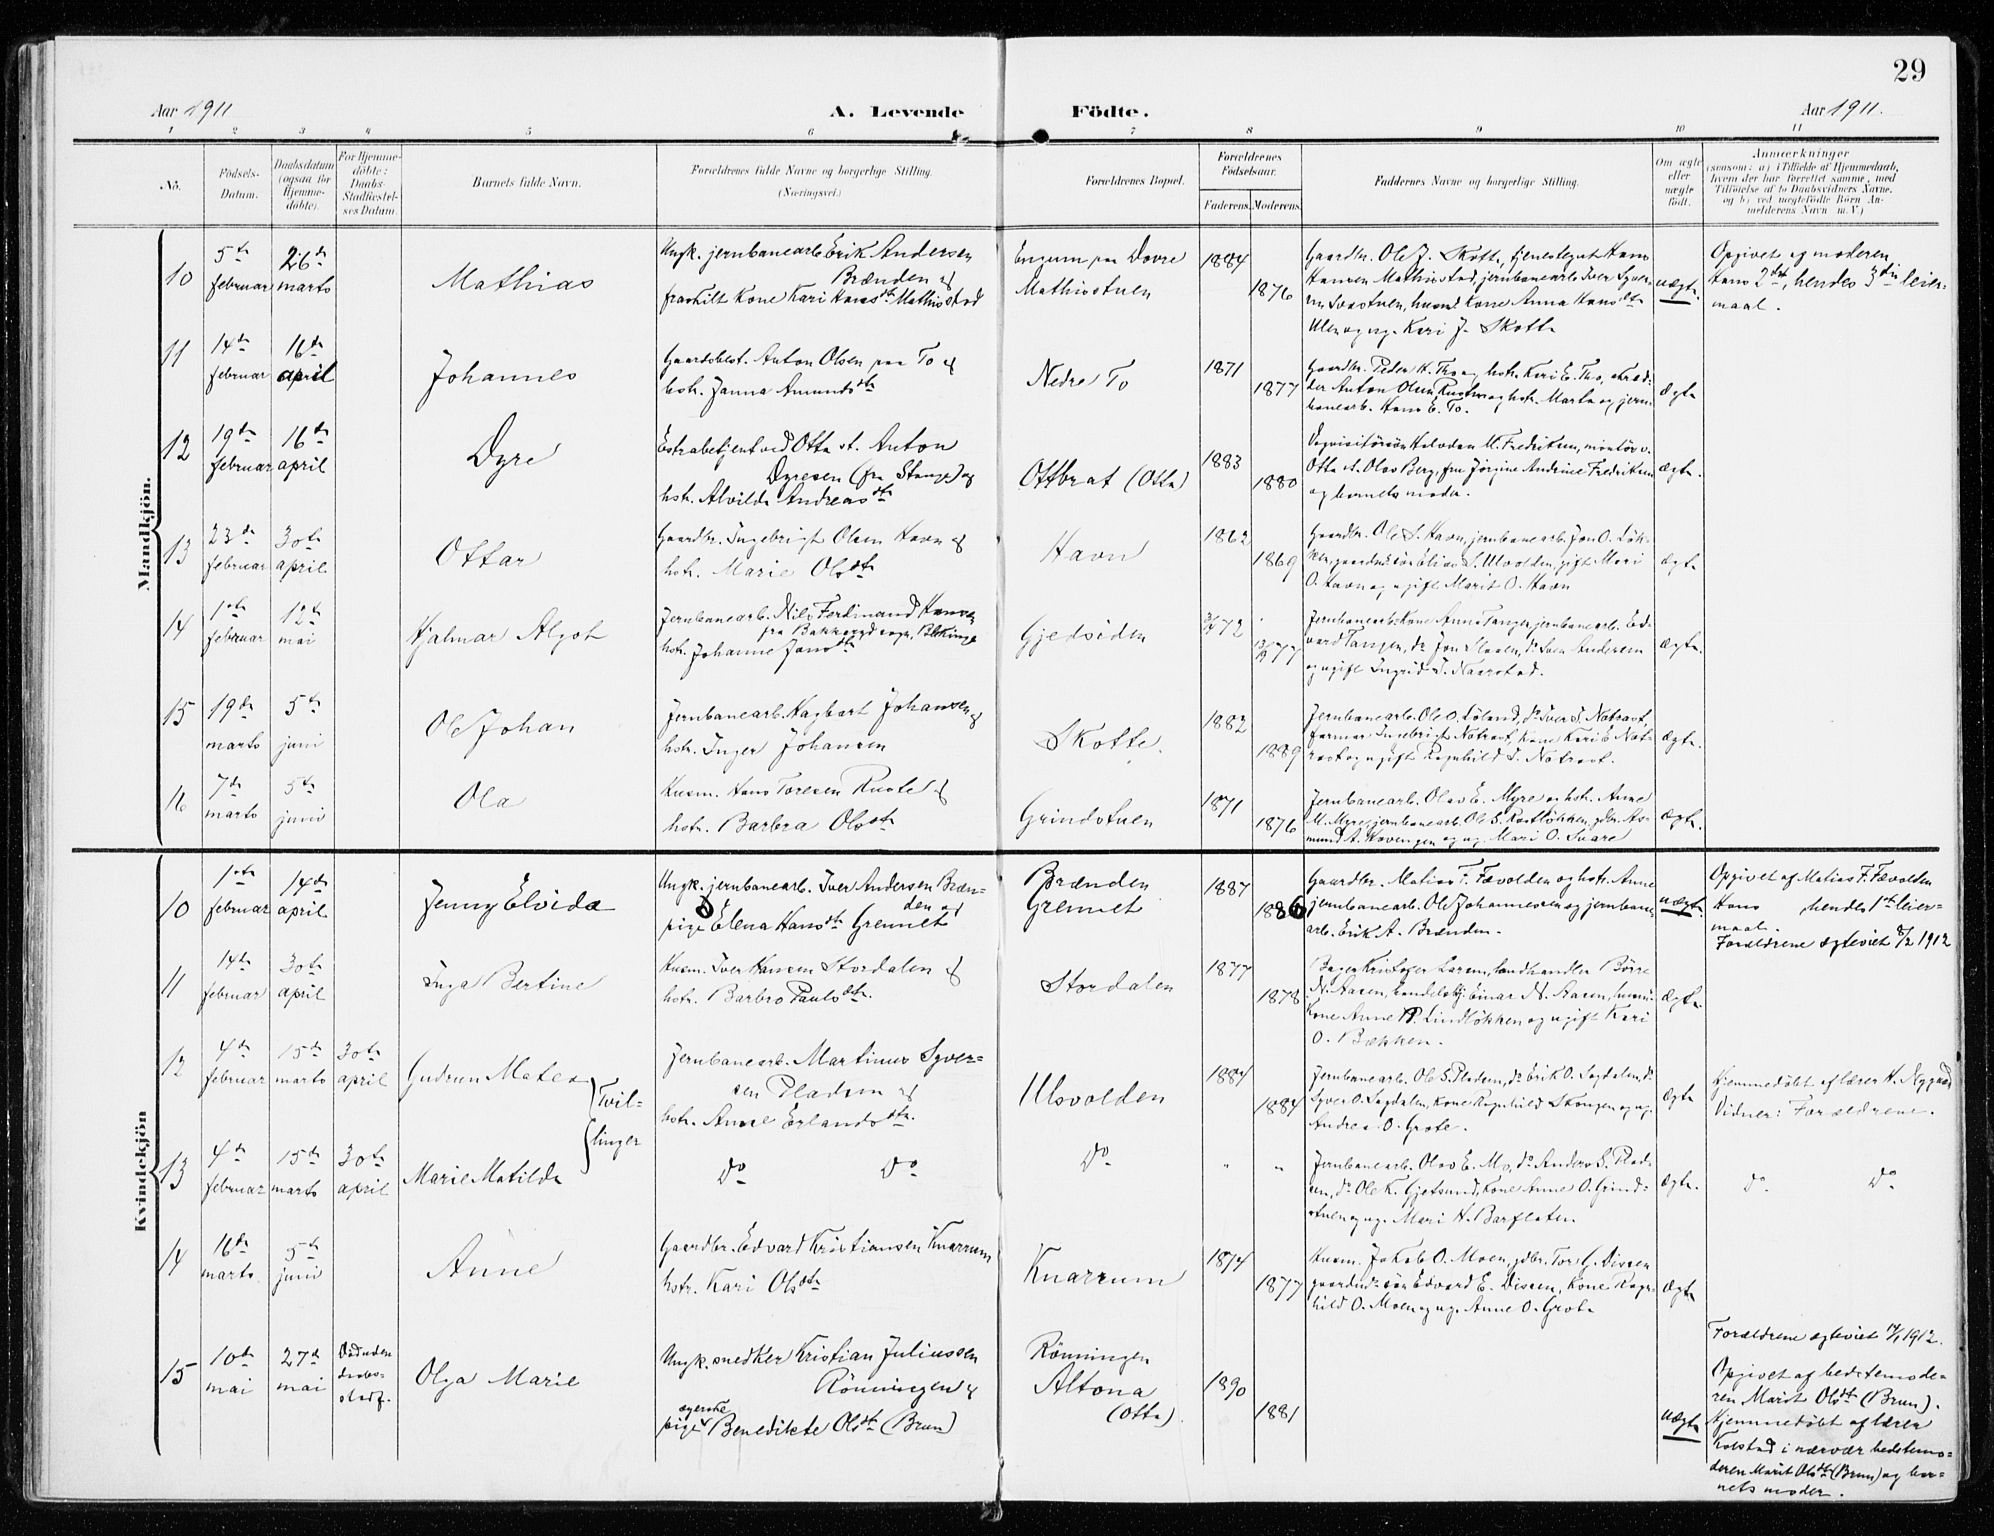 29
Aar 1911
A. Levende Födte.
Aar 1911.
1 2 3 4 5 6 7 8 9 10 11
No. Födsels-Datum. Daabsdatum (ogsaa for Hjemme-döbte). For Hjemme-döbte: Daabs-Stadfæstel-ses Datum Barnets fulde Navn. Forældrenes fulde Navne og borgerlige Stilling. (Næringsvei.) Forældrenes Bopæl. Forældrenes Födselsaar. Faderens. Moderens. Faddernes Navne og borgerlige Stilling. Om ægte eller uægte födt. Anmærkninger (saasom: a) i Tilfælde af Hjemmedaab, hvem der har forrettet samme, med Tilföielse af to Daabsvidners Navne, og b) ved uægtefödte Börn An-melderens Navn m.V.)
Mandkjön.
10 5te februar 26de marts Mathias
Ungk. jernbanearb. Erik Andersen
Brænden og
fraskilt Kone Kari Hansdtr. Mathisstad
Engum paa Dovre
Mathisstuen
1884 1876
Gaardbr. Ole J. Skotte, tjenestegut Hans
Hansen Mathisstad, jernbanearb. Iver Syver-
Kone Anna Hansdtr
Ulen og ug. Kari J. Skotte
uægte
Opgivet af moderen
Hans 2det, hendes 3die leier-
maal.
11 14de februar 16de april Johannes
Gaardbest. Anton Olsen paa To og
hstr. Janna Amundsdtr
Nedre To
1871 1877
Gaardbr. Peder K. Tho og hstr. Kari E. Tho, skræd-
der Anton Olsen og hstr. Marta og jern-
banearb. Hans E. To.
ægte
12 19de februar 16de april Dyre
Extrabetjent ved Otta st. Anton
Dyresen (fra Stange) og
hstr. Alvilde Andreasdtr
Ottbrat (Otta)
1883 1880
Halvdan M. Fredriksen, montör v.
Otta st. Olav Berg, fru Jörgine Andrine Fredriksen
og barnets moder.
ægte.
13 23de februar 30te april Ottar
Gaardbr. Ingebrigt Olsen Havn og
hstr. Marie Olsdtr
Havn
1862 1869
Gaardbr. Ole S. Havn, jernbanearb. Jon O. Lök-
ken, gaardmd.sön Elias S. Ulvolden, gift Mari
O. Havn og ugift Marit O. Havn
ægte
14 1ste februar 12te mai Hjalmar Algot
Jernbanearb. Nils Ferdinand Hansen
fra Bakkaryd sogn, Blekinge
hstr. Johanne Jonsdtr
Gjedsiden
72 77
Jernbanearb. Kone Anna Tangen, jernbanearb. Ed-
vard Tangen, do Jon Moen, do Sven Andersen
og ugift Ingrid I. Naarstad.
ægte.
15 19de marts 5te juni Ole Johan
Jernbanearb. Hagbart Johansen og
hstr. Inger Johansen
Skotte.
1882 1889
Jernbanearb. Ole O. Löland, do Iver I. Nætrast,
farmar Ingebrigt Nætrast, Kone Kari E. Næt-
rast og ugift Ragnhild I. Nætrast.
ægte.
16 7de marts 5te juni Ola
Husm. Hans Toresen Ruste og
hstr. Barbra Olsdtr
Grindstuen
1871 1876
Jernbanearb. Olav E. Myre og hstr. Anne
M. Myre, jernbanearb. Ole S. Rustlökken, gdbr. As-
mund A. Hovengen og ug. Mari O. Svare
ægte.
Kvindekjön
10 1ste februar 14de april Jenny Elvida
Ungk. jernbanearb. Iver Andersen Bræn-
den og
pige Elena Hansdtr Grennet
Brænden
Grennet
1887 1886
Gaardbr. Matias F. Fævolden og hstr. Anne
jernbanearb. Ole Johannessen og jernbane-
arb. Erik A. Brænden.
uægte
Opgivet af Matias F. Fævolden
Hans hendes 1ste leier-
maal.
Forældrene ægteviet 8/2 1912
11 14de februar 30te april Inga Bertine
Husm. Iver Hansen Stordalen og
hstr. Barbro Paulsdtr.
Stordalen
1877 1878
Bager Kristofer Larsen, landhandler Börre
N. Aasen, handelsbtj. Einar N. Aasen, husm.-
Kone Anne P. Lindlökken og ugift Kari
O. Bækken.
ægte.
12 4de februar 15de marts 30te april Gudrun Matea
Tvil-
linger
Jernbanearb. Martinus Syver-
sen Pladsen og
hstr. Anne Erlandsdtr.
Ulsvolden
1884 1884
Jernbanearb. Ole S. Pladsen, do Erik O. Sagdalen, do
Syver O. Sagdalen, Kone Ragnhild Skougen og ug.
Andrea O. Grote.
ægte
Hjemmedöbt af lærer H. Nygaard
Vidner: Forældrene.
13 4de februar 15de marts 30te april Marie Matilde
do do
do
" "
Jernbanearb. Olav E. Mo, do Anders S. Plad-
sen, do Ole K. Gjetsund, Kone Anne O. Grind-
stuen og ug. Mari H. Barfloten.
ægte.
do. do
14 16de marts 5te juni Anne
Gaardbr. Edvard Kristiansen Knarrum
hstr. Kari Olsdtr
Knarrum
1874 1877
Husm. Jakob O. Moen, gdbr. Tor G. Dissen
gaardmd.sön Edvard E. Dissen, Kone Ragn-
hild O. Moen og ug. Anne O. Grote
ægte
15 10de mai 27de mai Död uden daabs-stadf. Olga Marie
Ungk. snedker Kristian Juliussen
Rönningen og
pige Benedikte Olsdtr (Brun)
Rönningen
Altona
(Otta).
1890 1881
uægte
Forældrene ægteviet 14/1 1912.
Opgivet af bedstemode-
ren Marit Olsdtr (Brun).
Hjemmedöbt af lærer
Kolstad i nærvær bedstemo-
deren Marit Olsdtr (Brun) og bar-
nets moder.